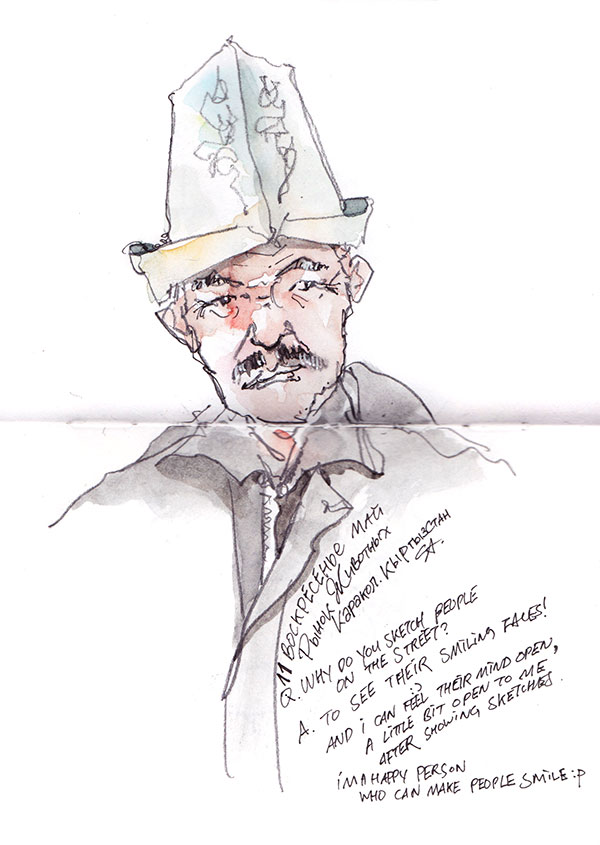 11 ВОСКРЕСЕНЬЕ МАЙ
РЫНОК ЖИВОТНЫХ
КАРАКОЛ. КЫРГЫЗСТАН
SA.
Q. WHY DO YOU SKETCH PEOPLE
ON THE STREET?
A. TO SEE THEIR SMILING FACES!
:)
AND i CAN FEEL THEIR MIND OPEN,
A LITTLE BIT OPEN TO ME
AFTER SHOWING SKETCHES.
i'M A HAPPY PERSON
WHO CAN MAKE PEOPLE SMILE :P